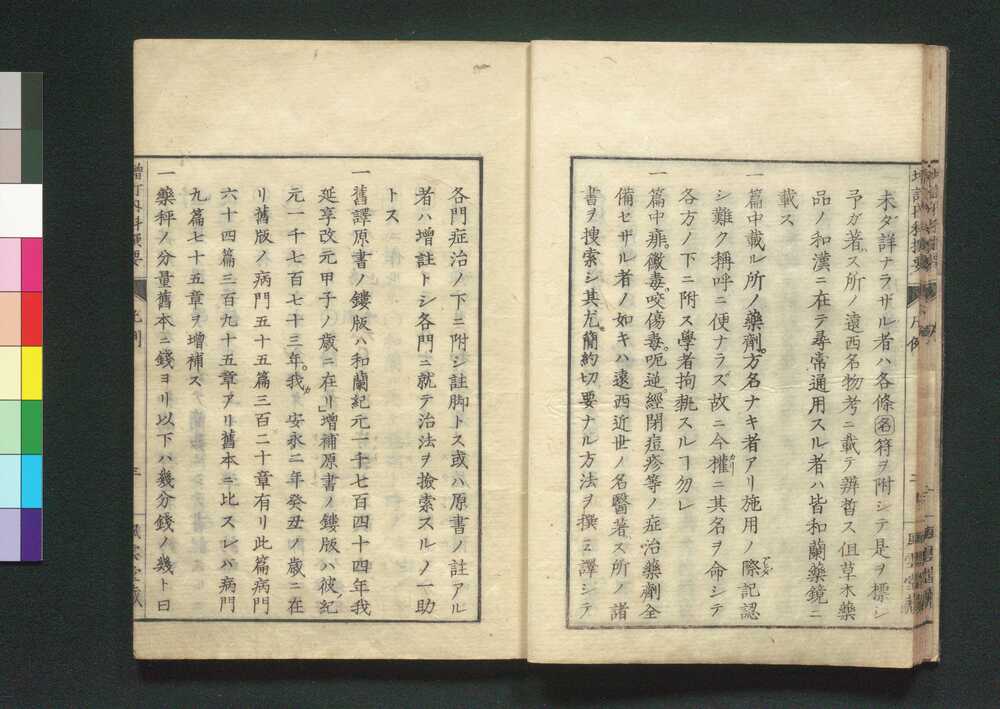 未タ詳ナラザル者ハ各條㊔符ヲ附シテ是ヲ標シ
予ガ著ス所ノ遠西名物考ニ載テ辨晳ス但草木藥
品ノ和漢ニ在テ尋常通用スル者ハ皆和蘭藥鏡ニ
載ス
一篇中載ル所ノ藥劑方名ナキ者アリ施用ノ際記認
シ難ク稱呼ニ便ナラズ故ニ今權ニ其名ヲ命シテ
各方ノ下ニ附ス學者拘執スルヿ勿レ
一篇中痱黴毒咬傷毒呃逆經閉痘疹等ノ症治藥劑全
備セザル者ノ如キハ遠西近世ノ名醫著ス所ノ諸
書ヲ搜索シ其尤簡約切要ナル方法ヲ撰ミ譯シテ
各門症治ノ下ニ附シ註脚トス或ハ原書ノ註アル
者ハ增註トシ各門ニ就テ治法ヲ撿索スルノ一助
トス
一舊譯原書ノ鏤版ハ和蘭紀元一千七百四十四年我
延享改元甲子ノ歳ニ在リ增補原書ノ鏤版ハ彼紀
元一千七百七十三年我カ安永二年癸丑ノ歳ニ在
リ舊版ノ病門五十五篇三百二十章有リ此篇病門
六十四篇三百九十五章アリ舊本ニ比スレバ病門
九篇七十五章ヲ增補ス
一藥秤ノ分量舊本ニ錢ヨリ以下ハ幾分錢ノ幾ト曰